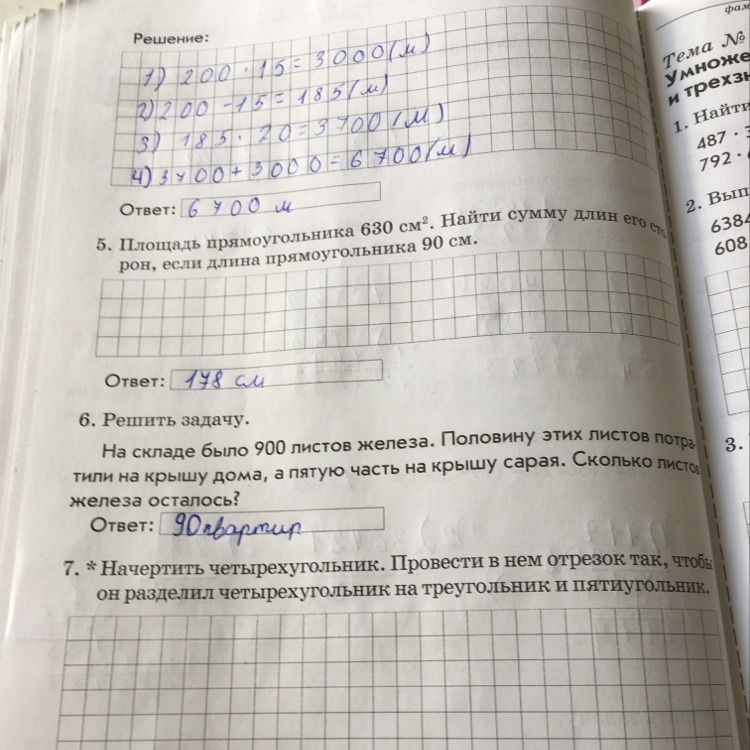 фам
Решение:
1) 200 · 15 = 3000 (м)
2) 200 - 15 = 185 (м)
3) 185 · 20 = 3700 (м)
4) 3700 + 3000 = 6700 (м)
Ответ: 6700 м
5. Площадь прямоугольника 630 см². Найти сумму длин его сто-
рон, если длина прямоугольника 90 см.
Ответ: 178 см
6. Решить задачу.
На складе было 900 листов железа. Половину этих листов потра-
тили на крышу дома, а пятую часть на крышу сарая. Сколько листов
железа осталось?
Ответ: 90 квартир
7. * Начертить четырехугольник. Провести в нем отрезок так, чтобы
он разделил четырехугольник на треугольник и пятиугольник.
Тема №
Умноже
и трехзн
1. Найти
487 ·
792 ·
2. Вып
6384
608
3.